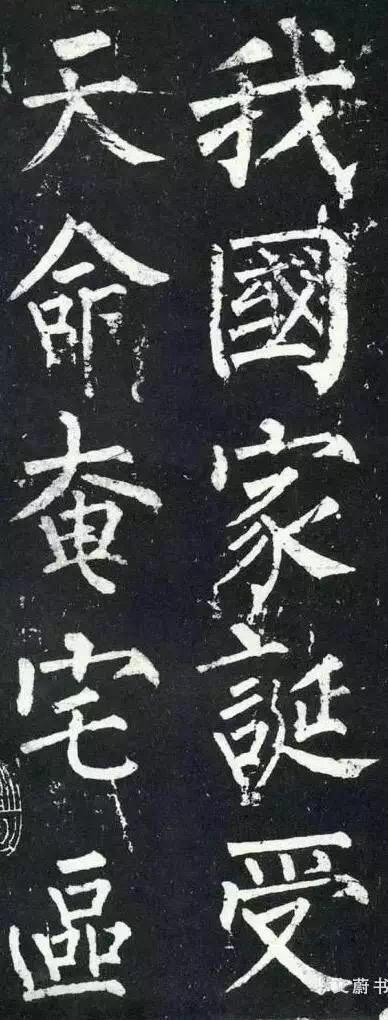 我國家誕受
天命奄宅區
蔚书